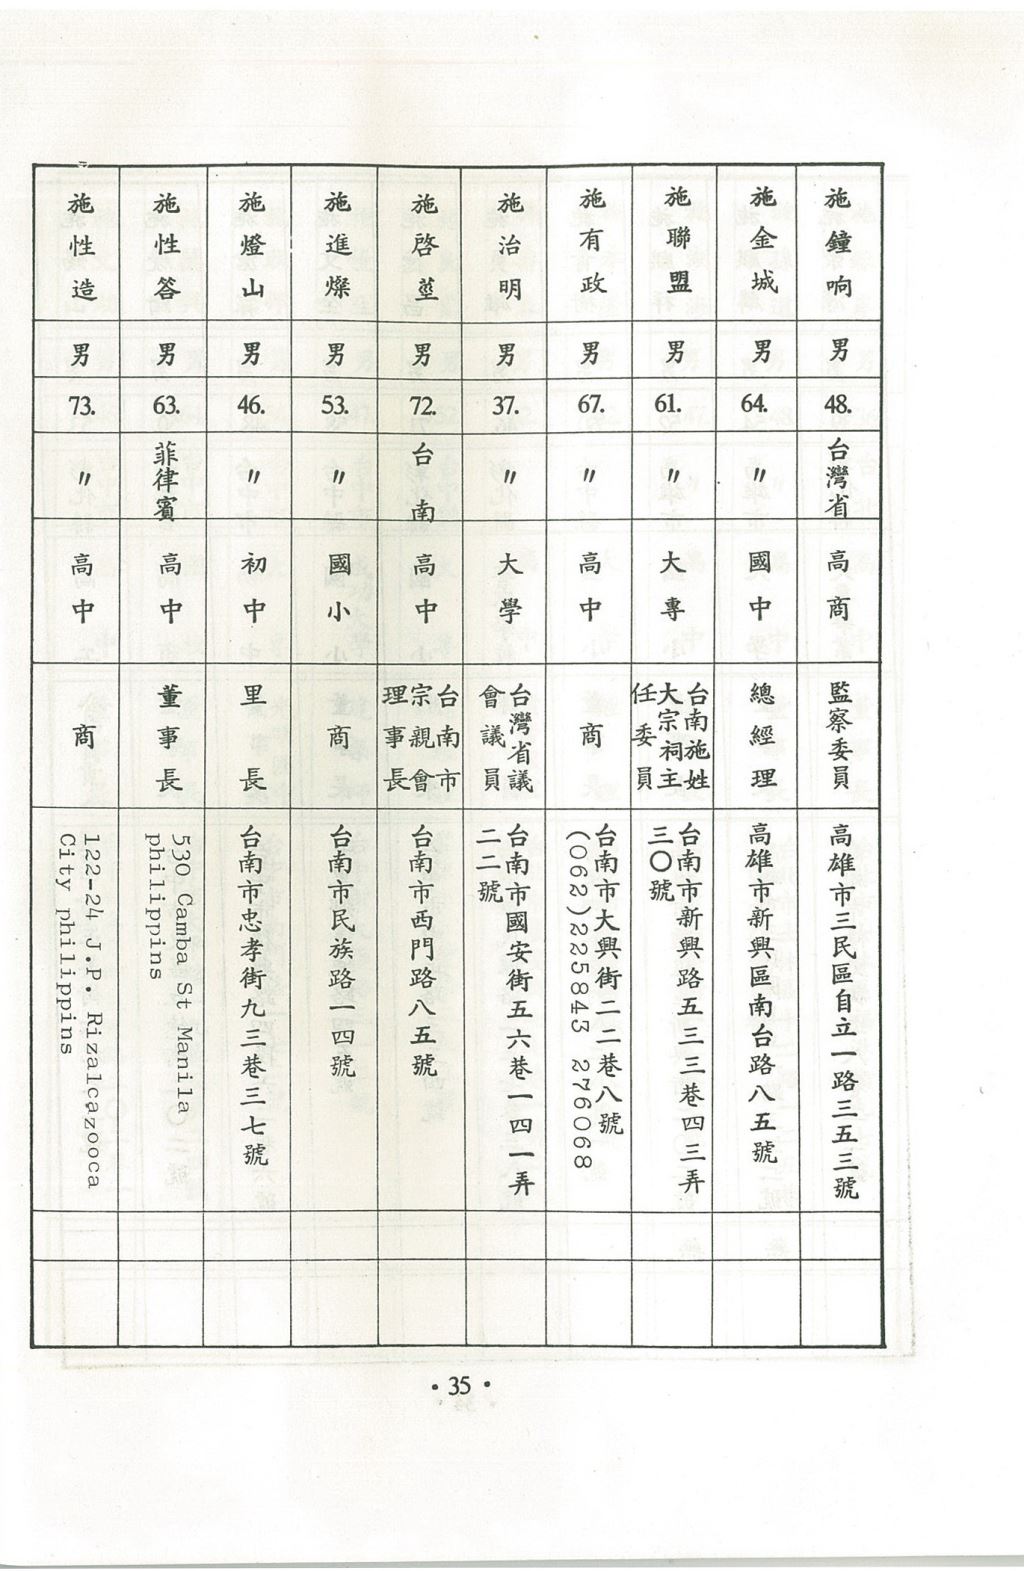 施鐘响
男
48.
台灣省
高商
監察委員
高雄市三民區自立一路三五三號
施金城
男
64.
〃
國中
總經理
高雄市新興區南台路八五號
施聯盟
男
61.
〃
大專
台南施姓
大宗祠主
任委員
台南市新興路五三三巷四三弄
三〇號
施有政
男
67.
〃
高中
商
台南市大興街二二巷八號
(062)225843 276068
施治明
男
37.
〃
大學
台灣省議
會議員
台南市國安街五六巷一四一弄
二二號
施啓莖
男
72.
台南
高中
台南市
宗親會
理事長
台南市西門路八五號
施進燦
男
53.
〃
國小
商
台南市民族路一四號
施燈山
男
46.
〃
初中
里長
台南市忠孝街九三巷三七號
施性答
男
63.
菲律賓
高中
董事長
530 Camba St Manila
philippins
施性造
男
73.
〃
高中
商
122-24 J.P. Rizalcazooca
City philippins
• 35 •